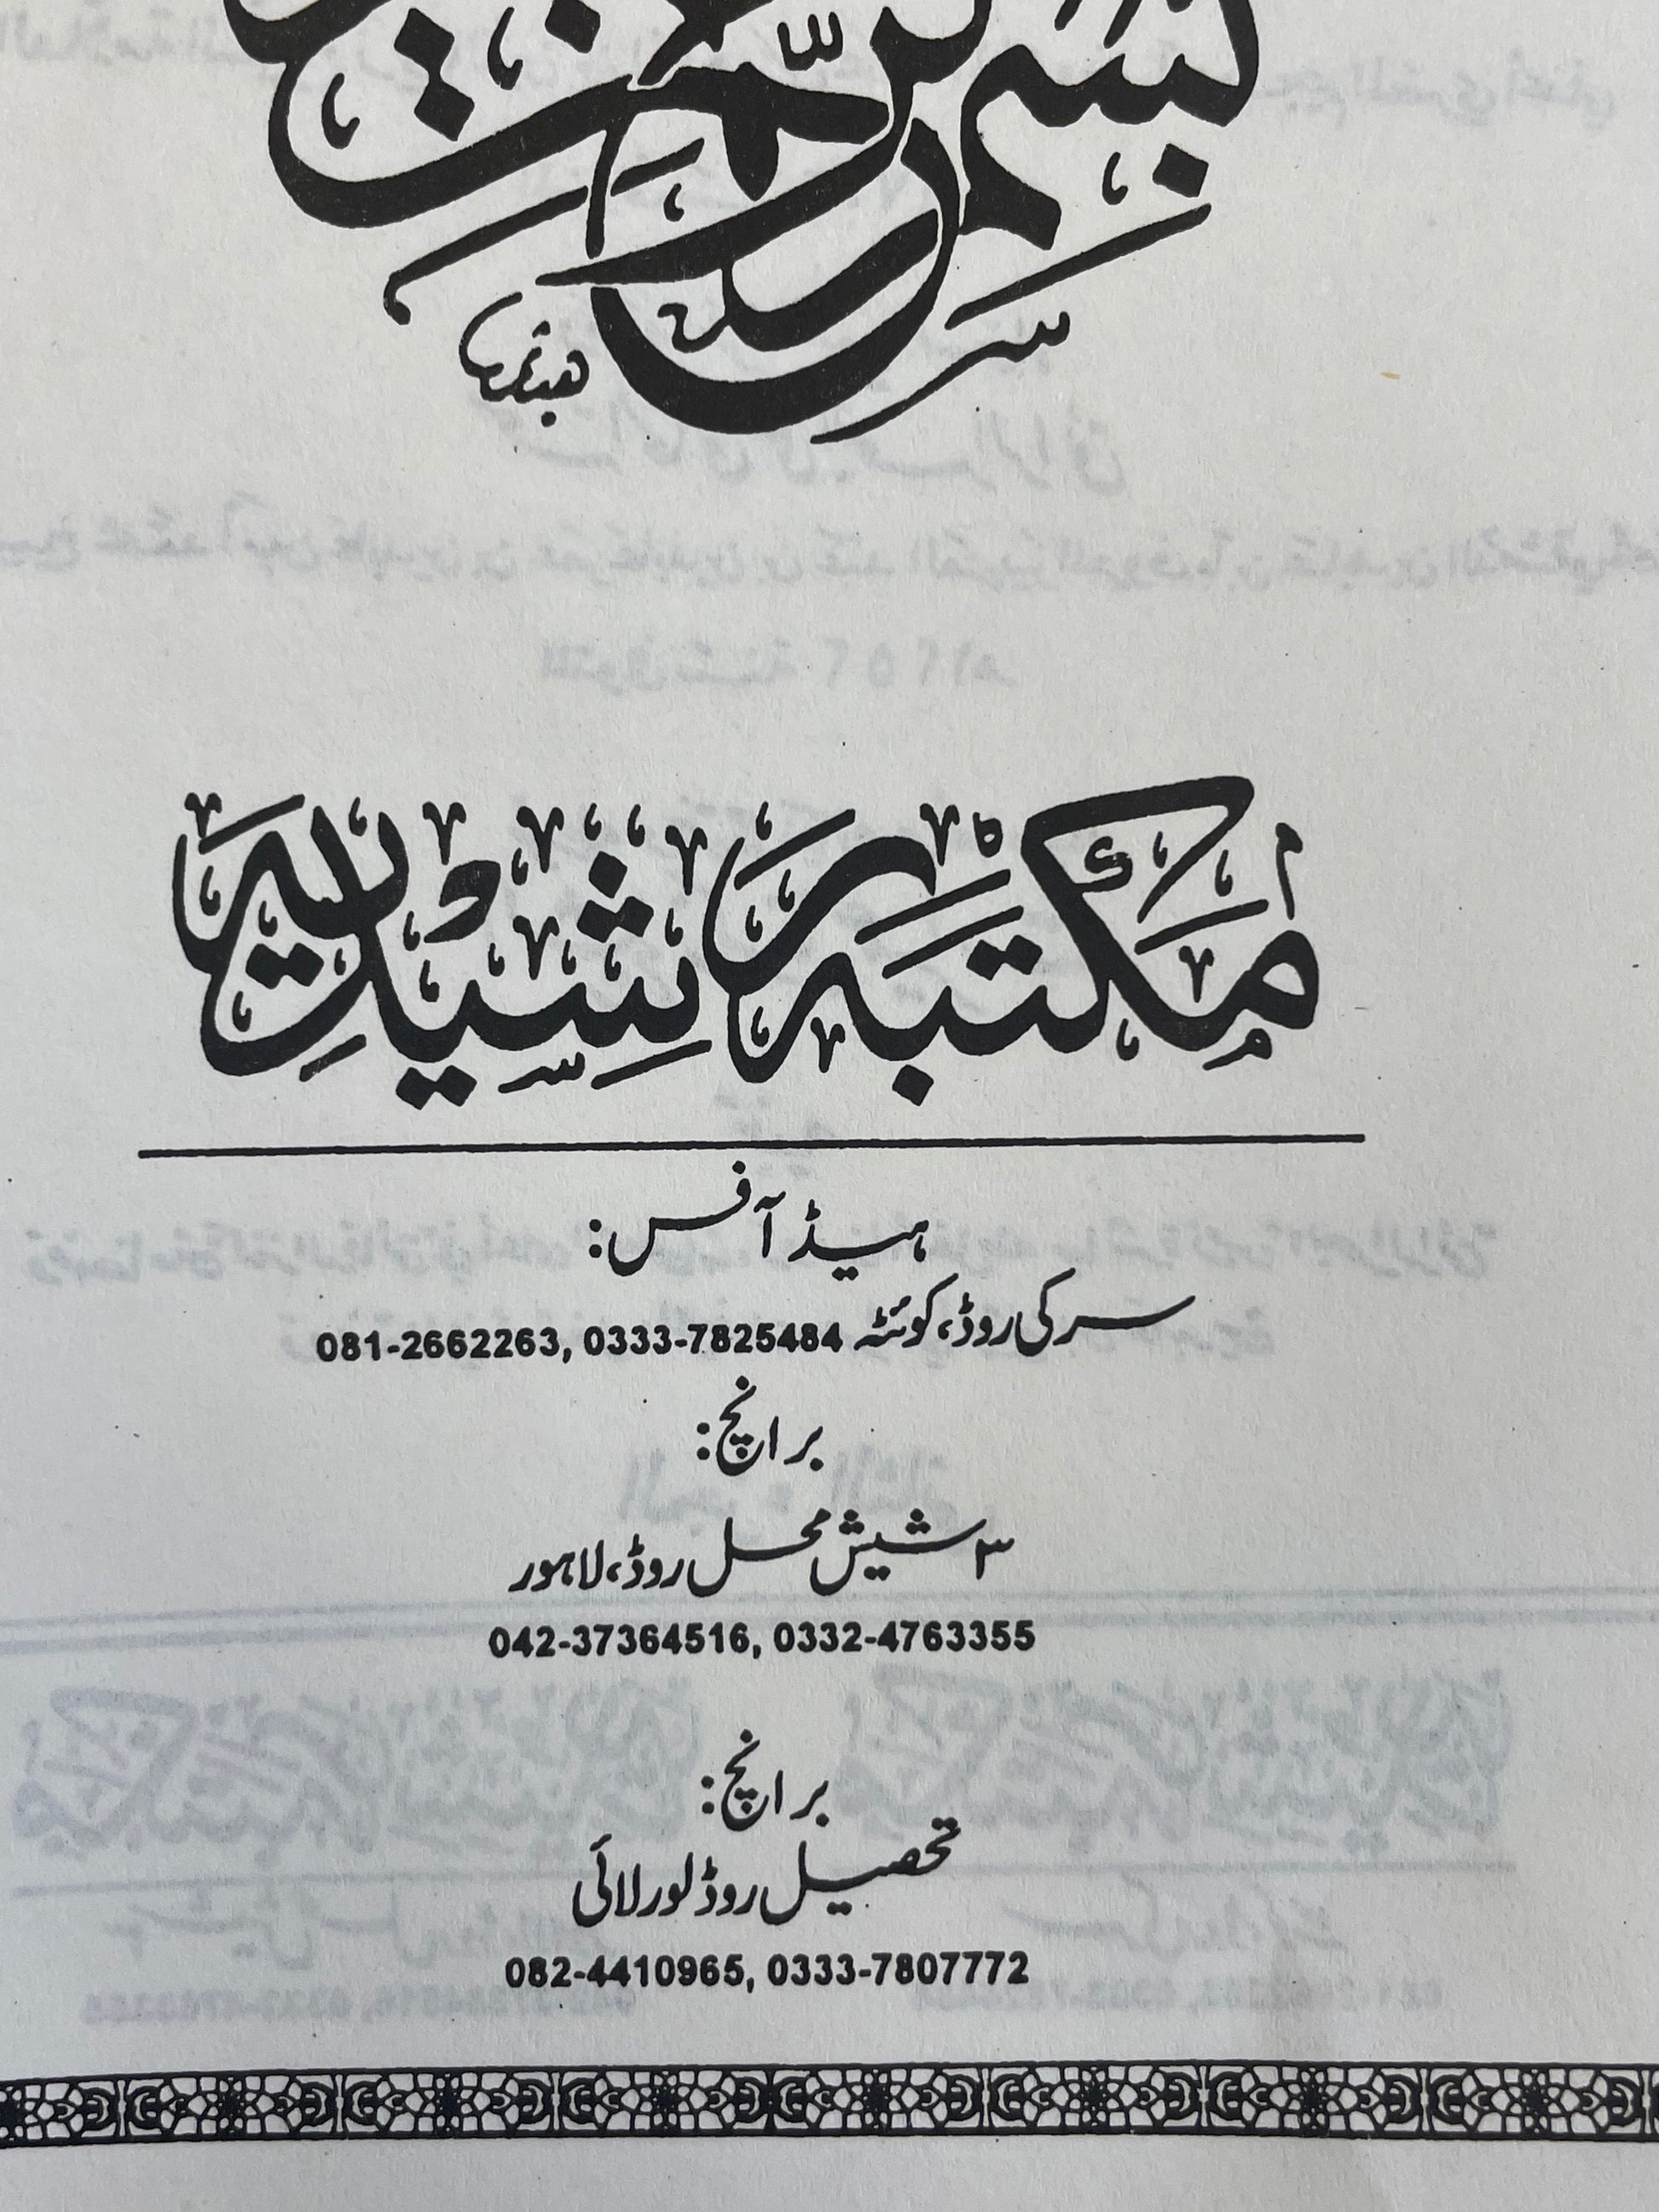 بسم
مكتبه رشيديه
ہیڈ آفس:
سرکی روڈ، کوئٹہ 081-2662263, 0333-7825484
برانچ:
۳ شیش محل روڈ، لاہور
042-37364516, 0332-4763355
برانچ:
تحصیل روڈ لورلائی
082-4410965, 0333-7807772